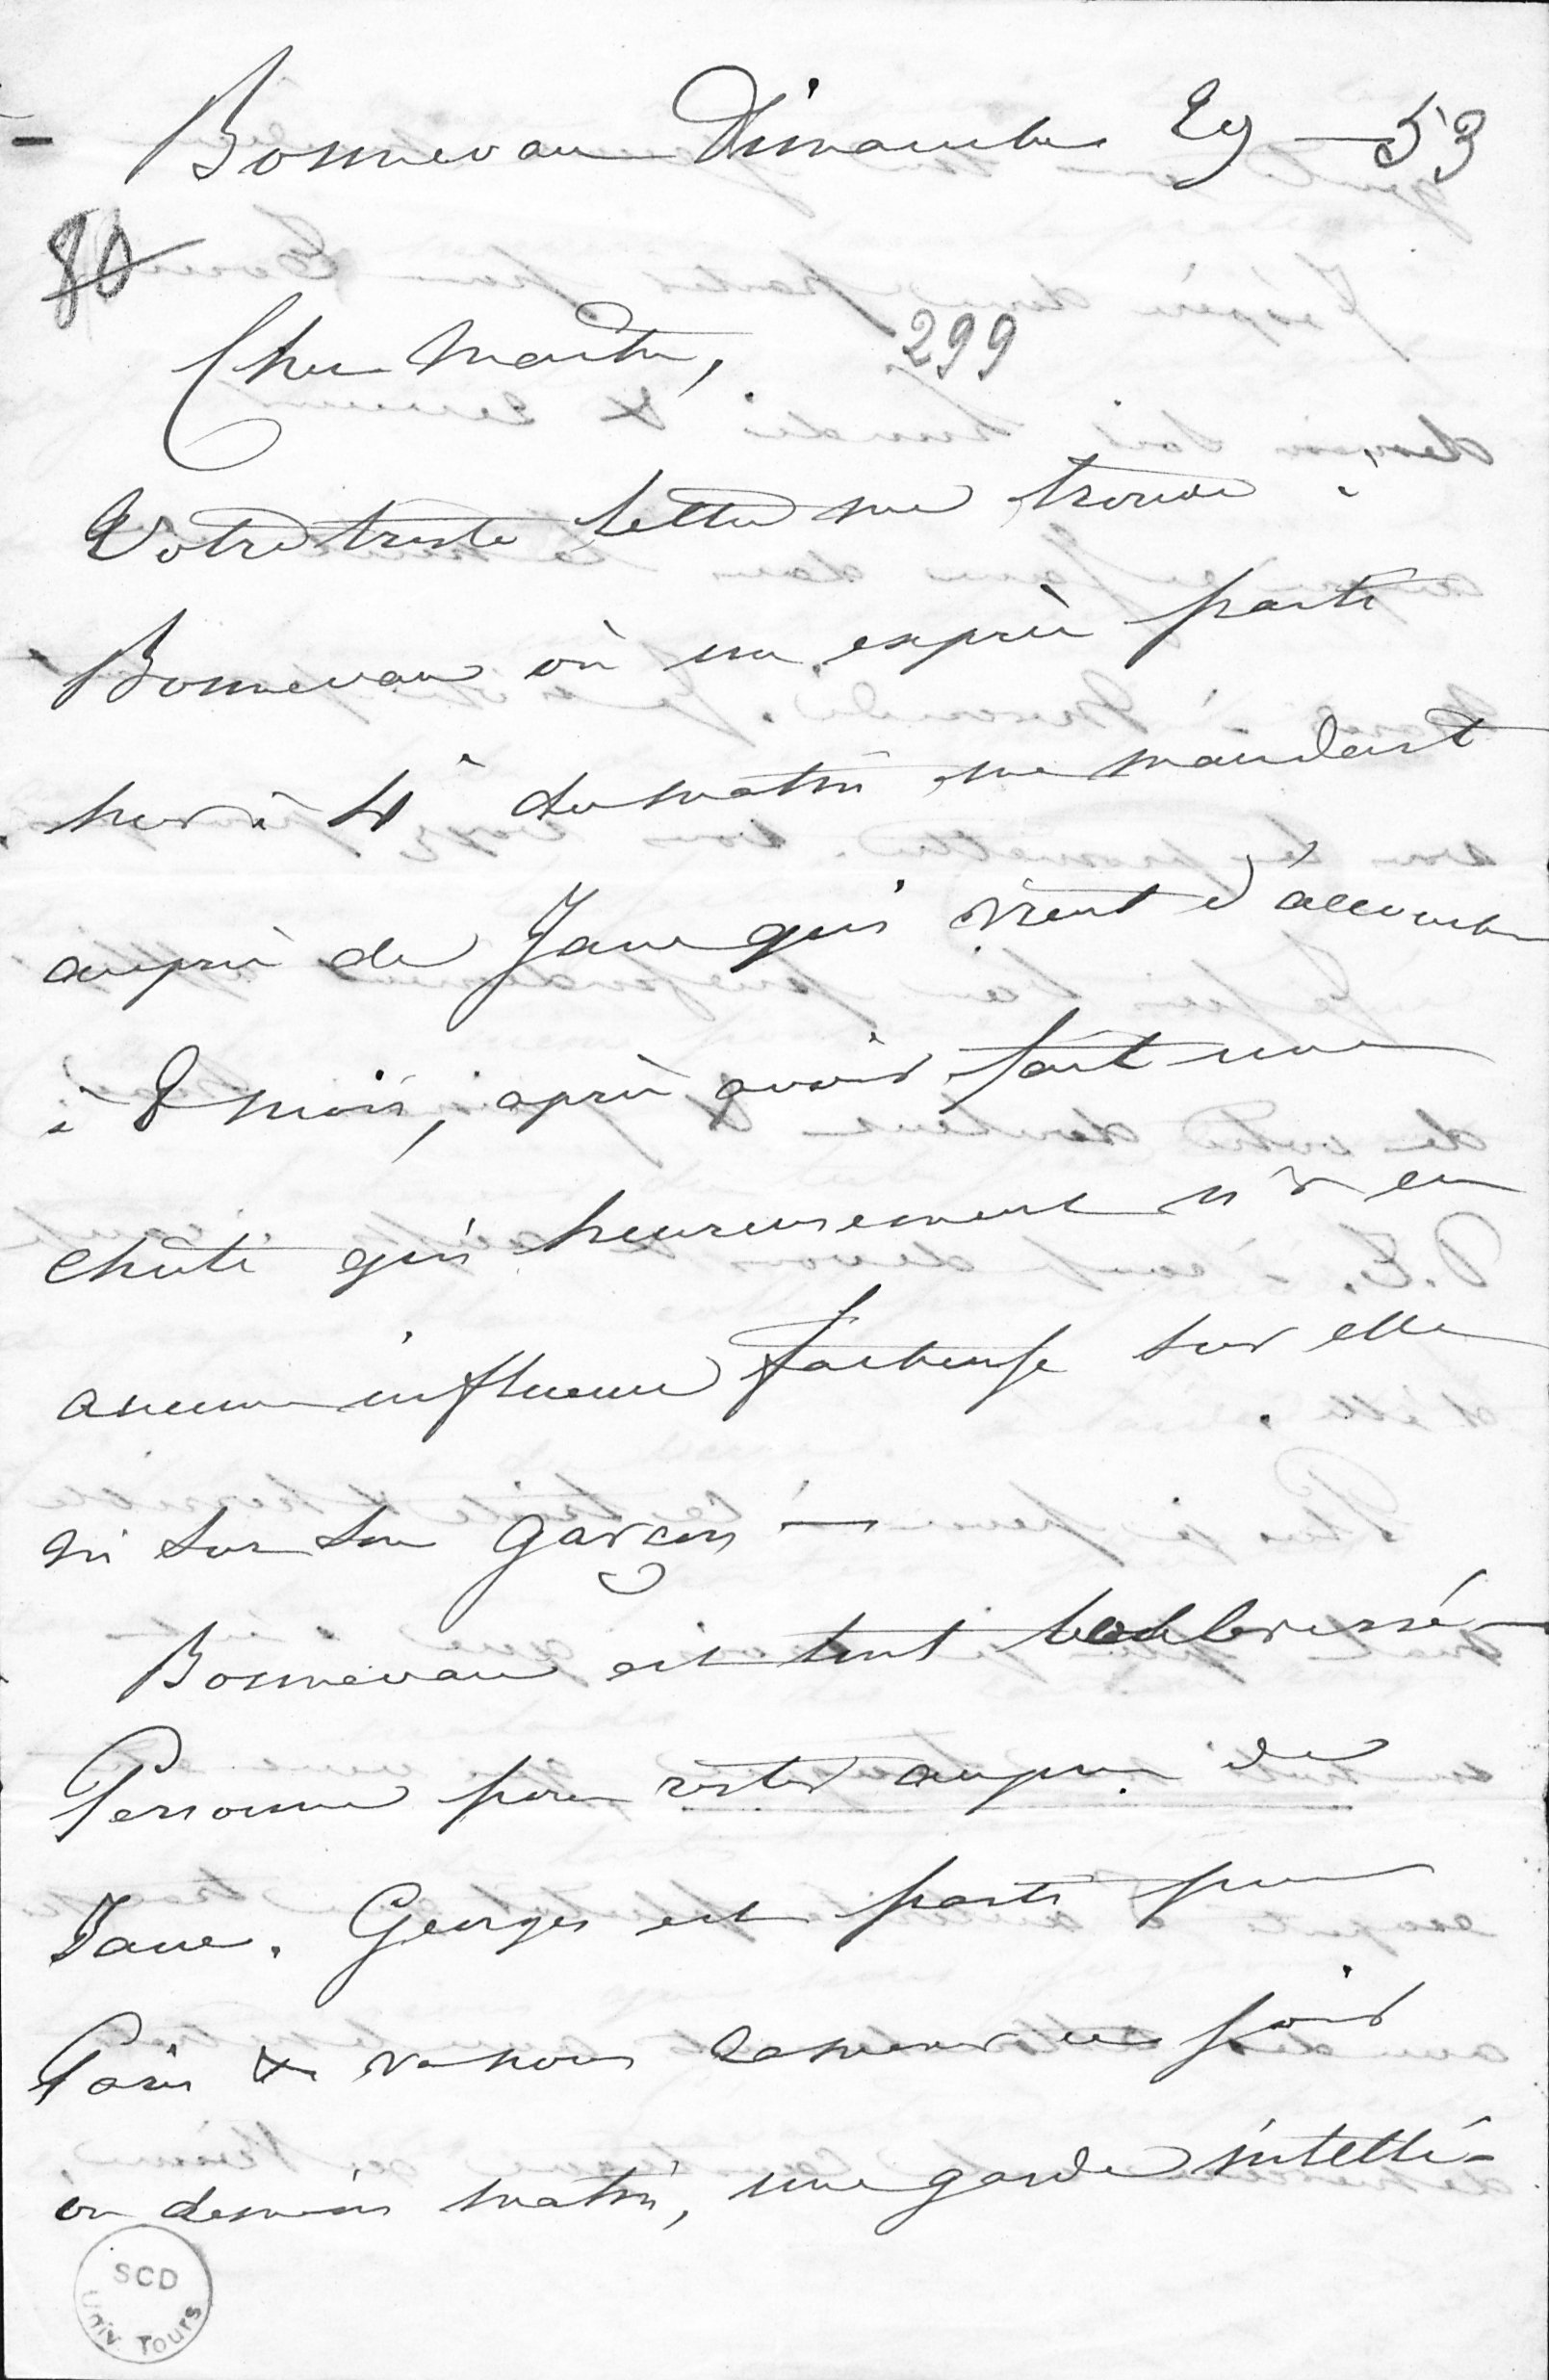 Bonnevau Dimanche 29 — 53
80
Cher Maitre,
299
Votre triste lettre me trouve à
Bonnevau où un exprès parti
hier à 4h du matin me mandait
auprès de Jane qui vient d'accoucher
à 8 mois, après avoir fait une
chute qui heureusement n'a eu
aucune influence facheuse sur elle
ni sur son garçon —
Bonnevau est tout bouleversé —
Personne pour rester auprès de
Jane. Georges est parti pour
Paris & va nous ramener ce soir
ou demain matin, une garde intelli-
SCD
Univ. Tours